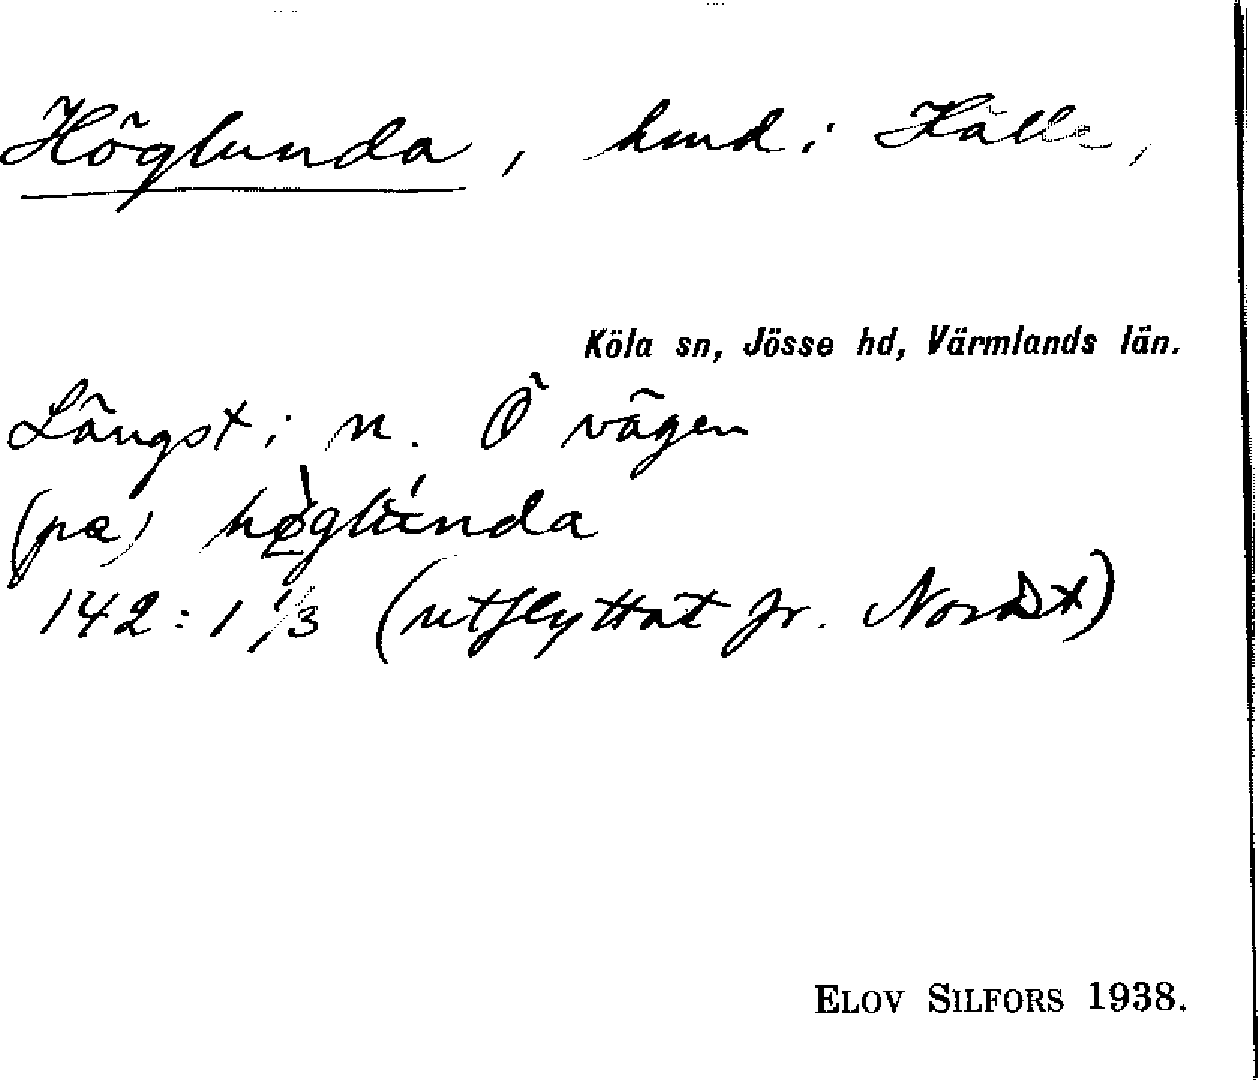 Höglunda, hmd i Hälle,
Köla sn, Jösse hd, Värmlands län.
Längst i n. Ö vägen
(pa) høglúnda
142:1 1/3 (utflyttat fr. Nordst)
ELOV SILFORS 1938.